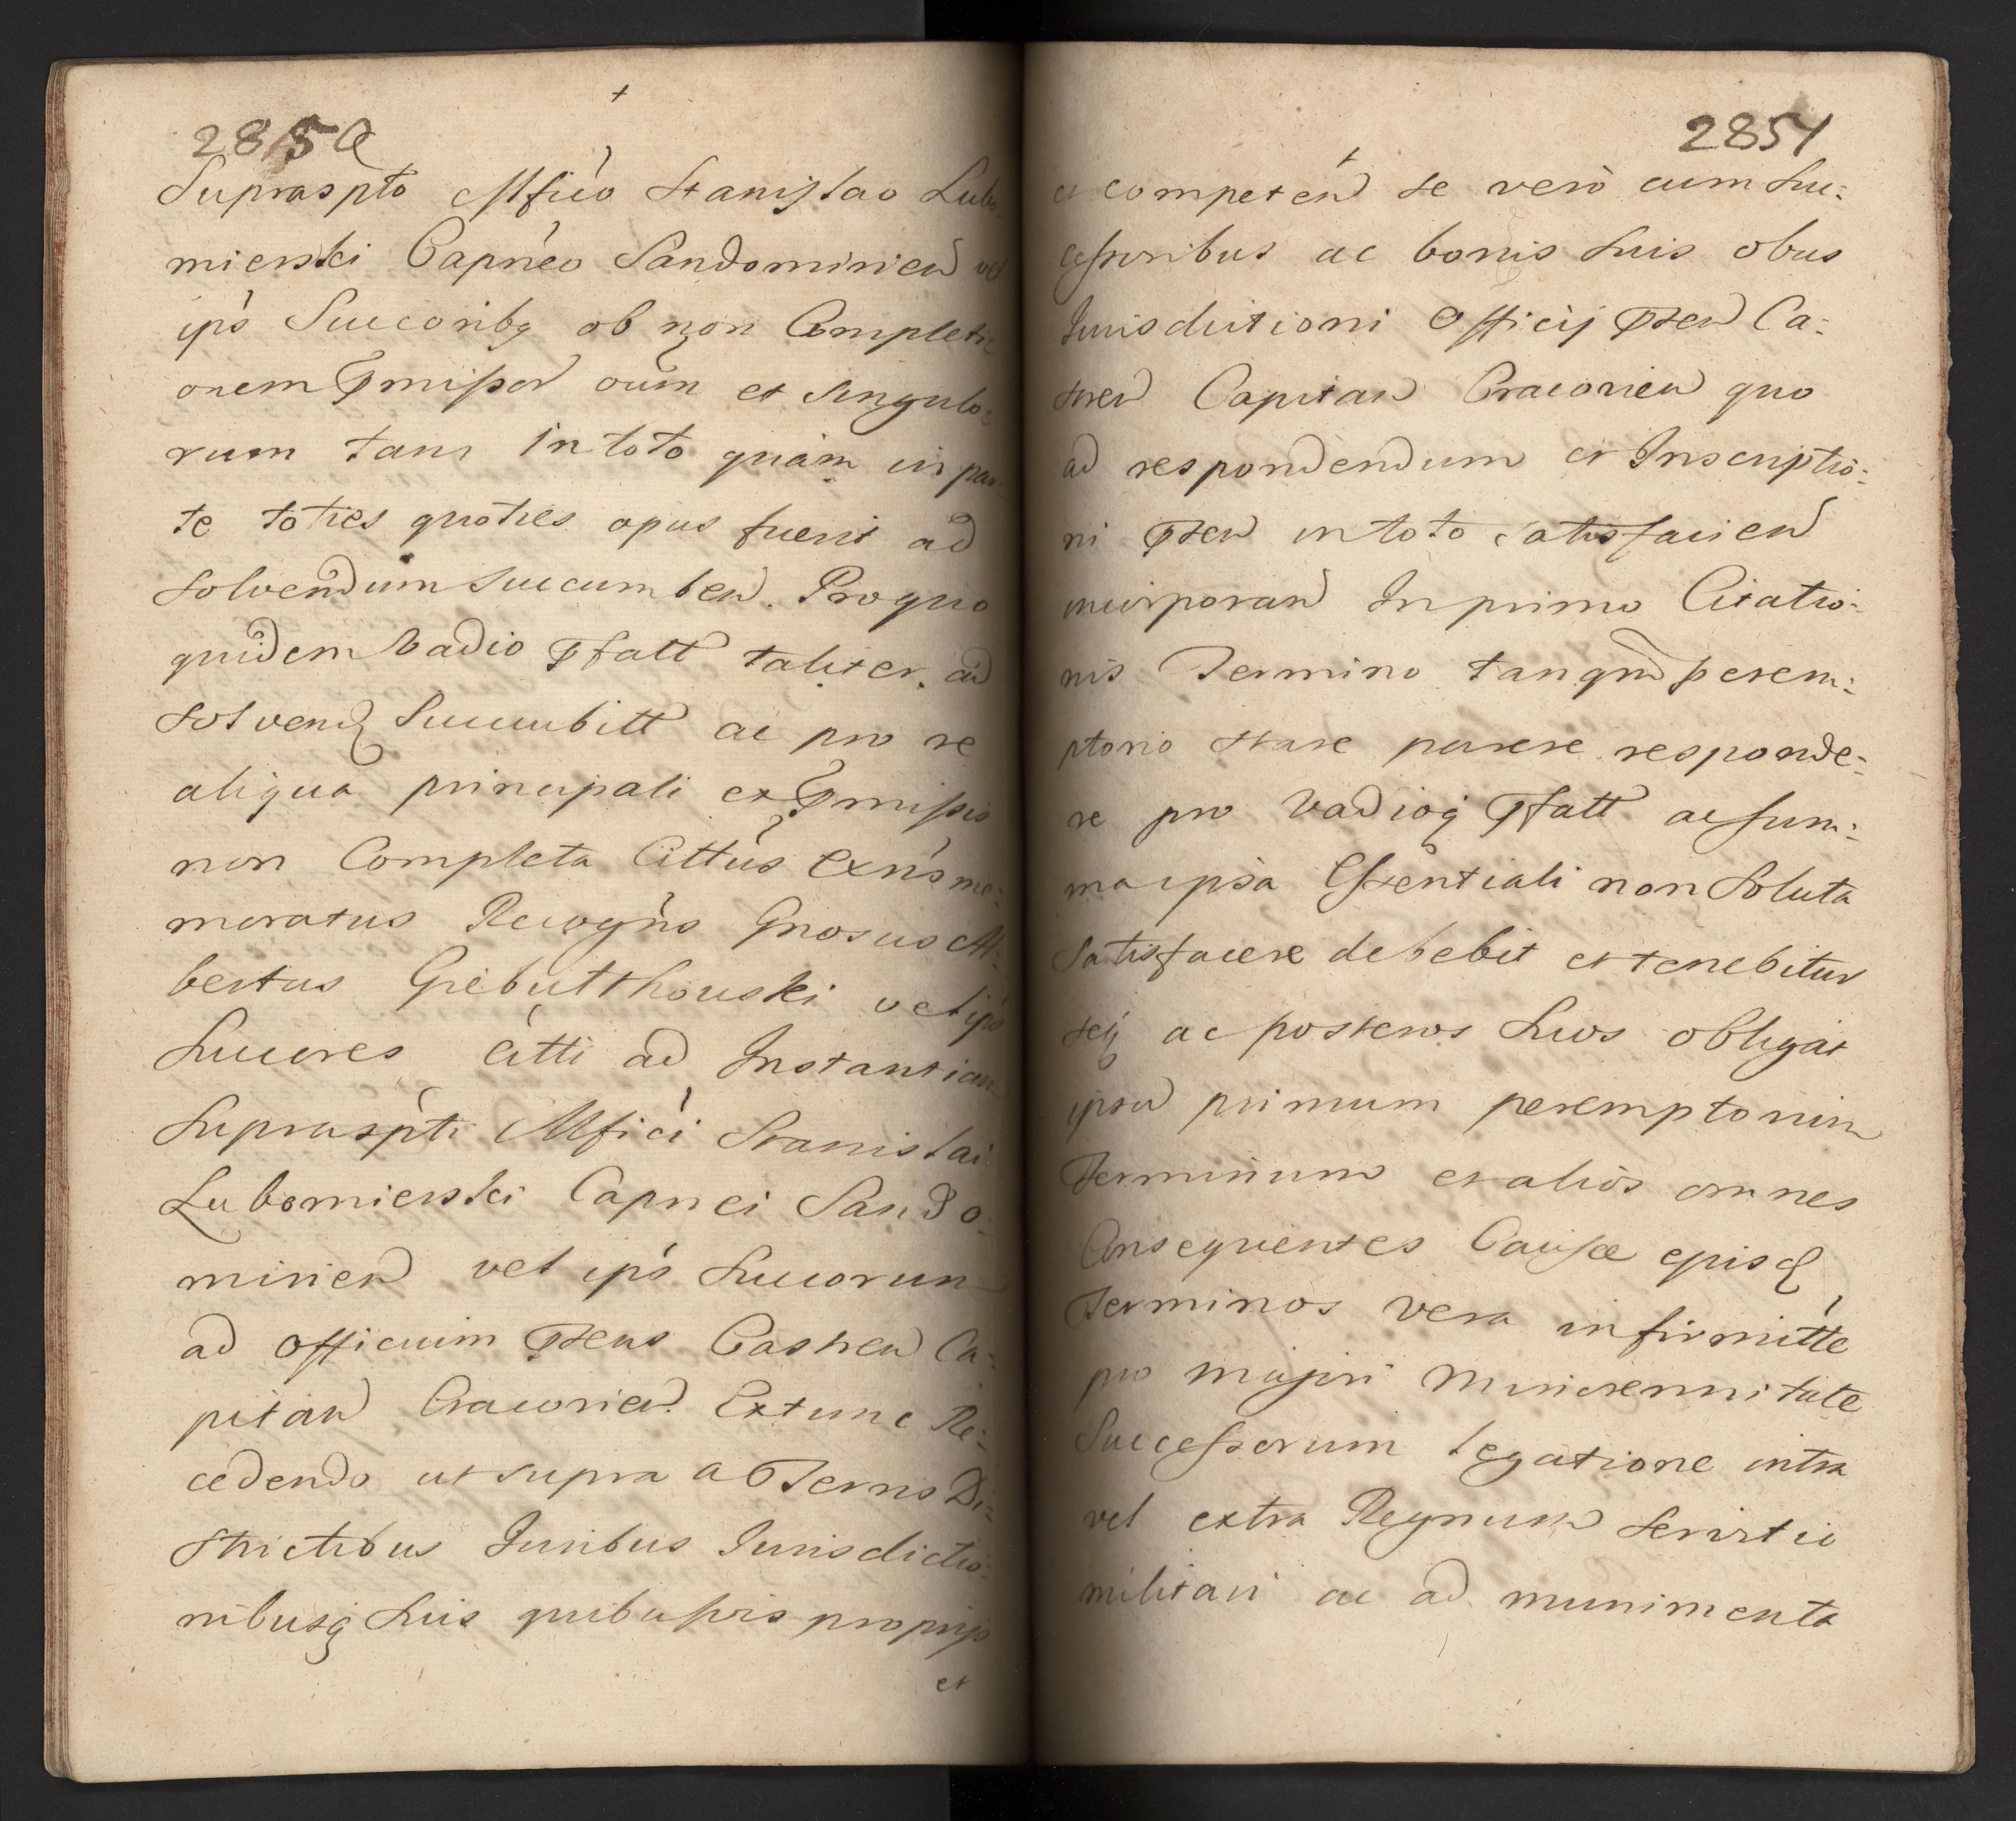 2850
Supraspto Mfico Stanislao Lubo-
mierski Capneo Sandomirien vel
ips Succoribq ob non Completi-
onem Pmissor oium et Singulo-
rum tam in toto quam in par-
te toties quoties opus fuerit ad
solvendum succumben. Pro quo
quidem Vadio Pfatt taliter ad
solvend Succubitt ac pro re
aliqua principali ex Pmissis
non Completa Cittus Exns me-
moratus Recogns Gnosus Al-
bertus Giebultthowski vel ips
Succores Citti ad Instantiam
Supraspti Mfici Stanislai
Lubomierski Capnei Sando-
mirien vel ips Succorum
ad officium Psens Castren Ca-
pitan Cracovien Extunc Re-
cedendo ut supra a Terris Di-
strictibus Iuribus Iurisdictio-
nibusq Suis quibusvis proprijs
et
2851
et competen se vero cum Suc-
cessoribus ac bonis suis obus
Iurisdictioni Officij Psen Ca-
stren Capitan Cracovien quo
ad respondendum et Inscriptio-
ni Psen in toto satisfacien
incorporan In primo Citatio-
nis Termino tanqm perem-
ptorio stare parere responde-
re pro Vadioq Pfatt ac sum-
ma ipsa Essentiali non Soluta
Satisfacere debebit et tenebitur
seq ac posteros Suos obligat
ipsu primum peremptorium
Terminum et alios omnes
Consequentes Causæ
Terminos vera infirmitte
pro majori Minorennitate
Successorum legatione intra
vel extra Regnum Servitio
militari ac ad munimenta